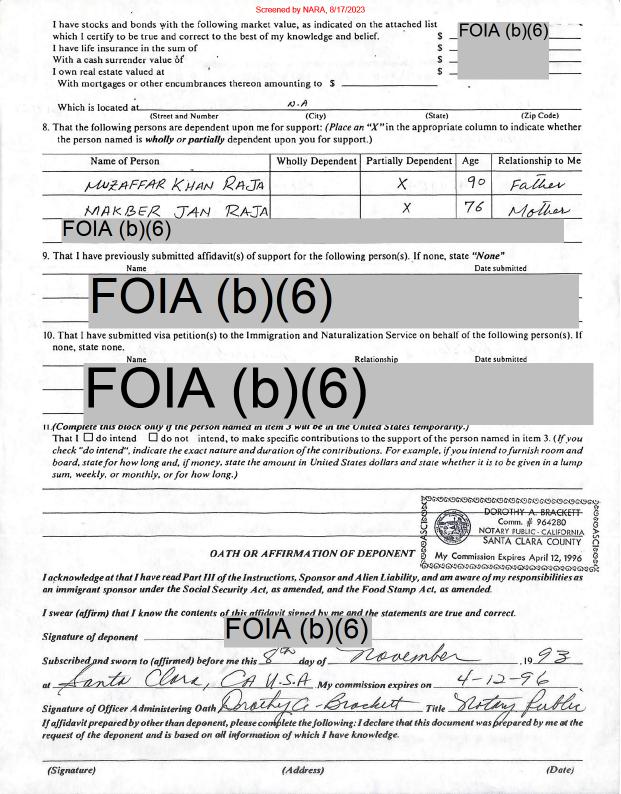 Screened by NARA, 8/17/2023
I have stocks and bonds with the following market value, as indicated on the attached list
which I certify to be true and correct to the best of my knowledge and belief. $ FOIA (b)(6)
I have life insurance in the sum of $
With a cash surrender value of $
I own real estate valued at $
With mortgages or other encumbrances thereon amounting to $
Which is located at N-A
(Street and Number) (City) (State) (Zip Code)
8. That the following persons are dependent upon me for support: (Place an "X" in the appropriate column to indicate whether
the person named is wholly or partially dependent upon you for support.)
Name of Person Wholly Dependent Partially Dependent Age Relationship to Me
MUZAFFAR KHAN RAJA X 90 Father
MAKBER JAN RAJA X 76 Mother
FOIA (b)(6)
9. That I have previously submitted affidavit(s) of support for the following person(s). If none, state "None"
Name Date submitted
FOIA (b)(6)
10. That I have submitted visa petition(s) to the Immigration and Naturalization Service on behalf of the following person(s). If
none, state none.
Name Relationship Date submitted
FOIA (b)(6)
11.(Complete this block only if the person named in item 3 will be in the United States temporarily.)
That I ☐ do intend ☐ do not intend, to make specific contributions to the support of the person named in item 3. (If you
check "do intend", indicate the exact nature and duration of the contributions. For example, if you intend to furnish room and
board, state for how long and, if money, state the amount in United States dollars and state whether it is to be given in a lump
sum, weekly, or monthly, or for how long.)
DOROTHY A. BRACKETT
Comm. # 964280
NOTARY PUBLIC - CALIFORNIA
SANTA CLARA COUNTY
My Commission Expires April 12, 1996
OATH OR AFFIRMATION OF DEPONENT
I acknowledge at that I have read Part III of the Instructions, Sponsor and Alien Liability, and am aware of my responsibilities as
an immigrant sponsor under the Social Security Act, as amended, and the Food Stamp Act, as amended.
I swear (affirm) that I know the contents of this affidavit signed by me and the statements are true and correct.
Signature of deponent FOIA (b)(6)
Subscribed and sworn to (affirmed) before me this 8th day of November , 19 93
at Santa Clara, CA U.S.A My commission expires on 4-12-96
Signature of Officer Administering Oath Dorothy A. Brackett Title Notary Public
If affidavit prepared by other than deponent, please complete the following: I declare that this document was prepared by me at the
request of the deponent and is based on all information of which I have knowledge.
(Signature) (Address) (Date)